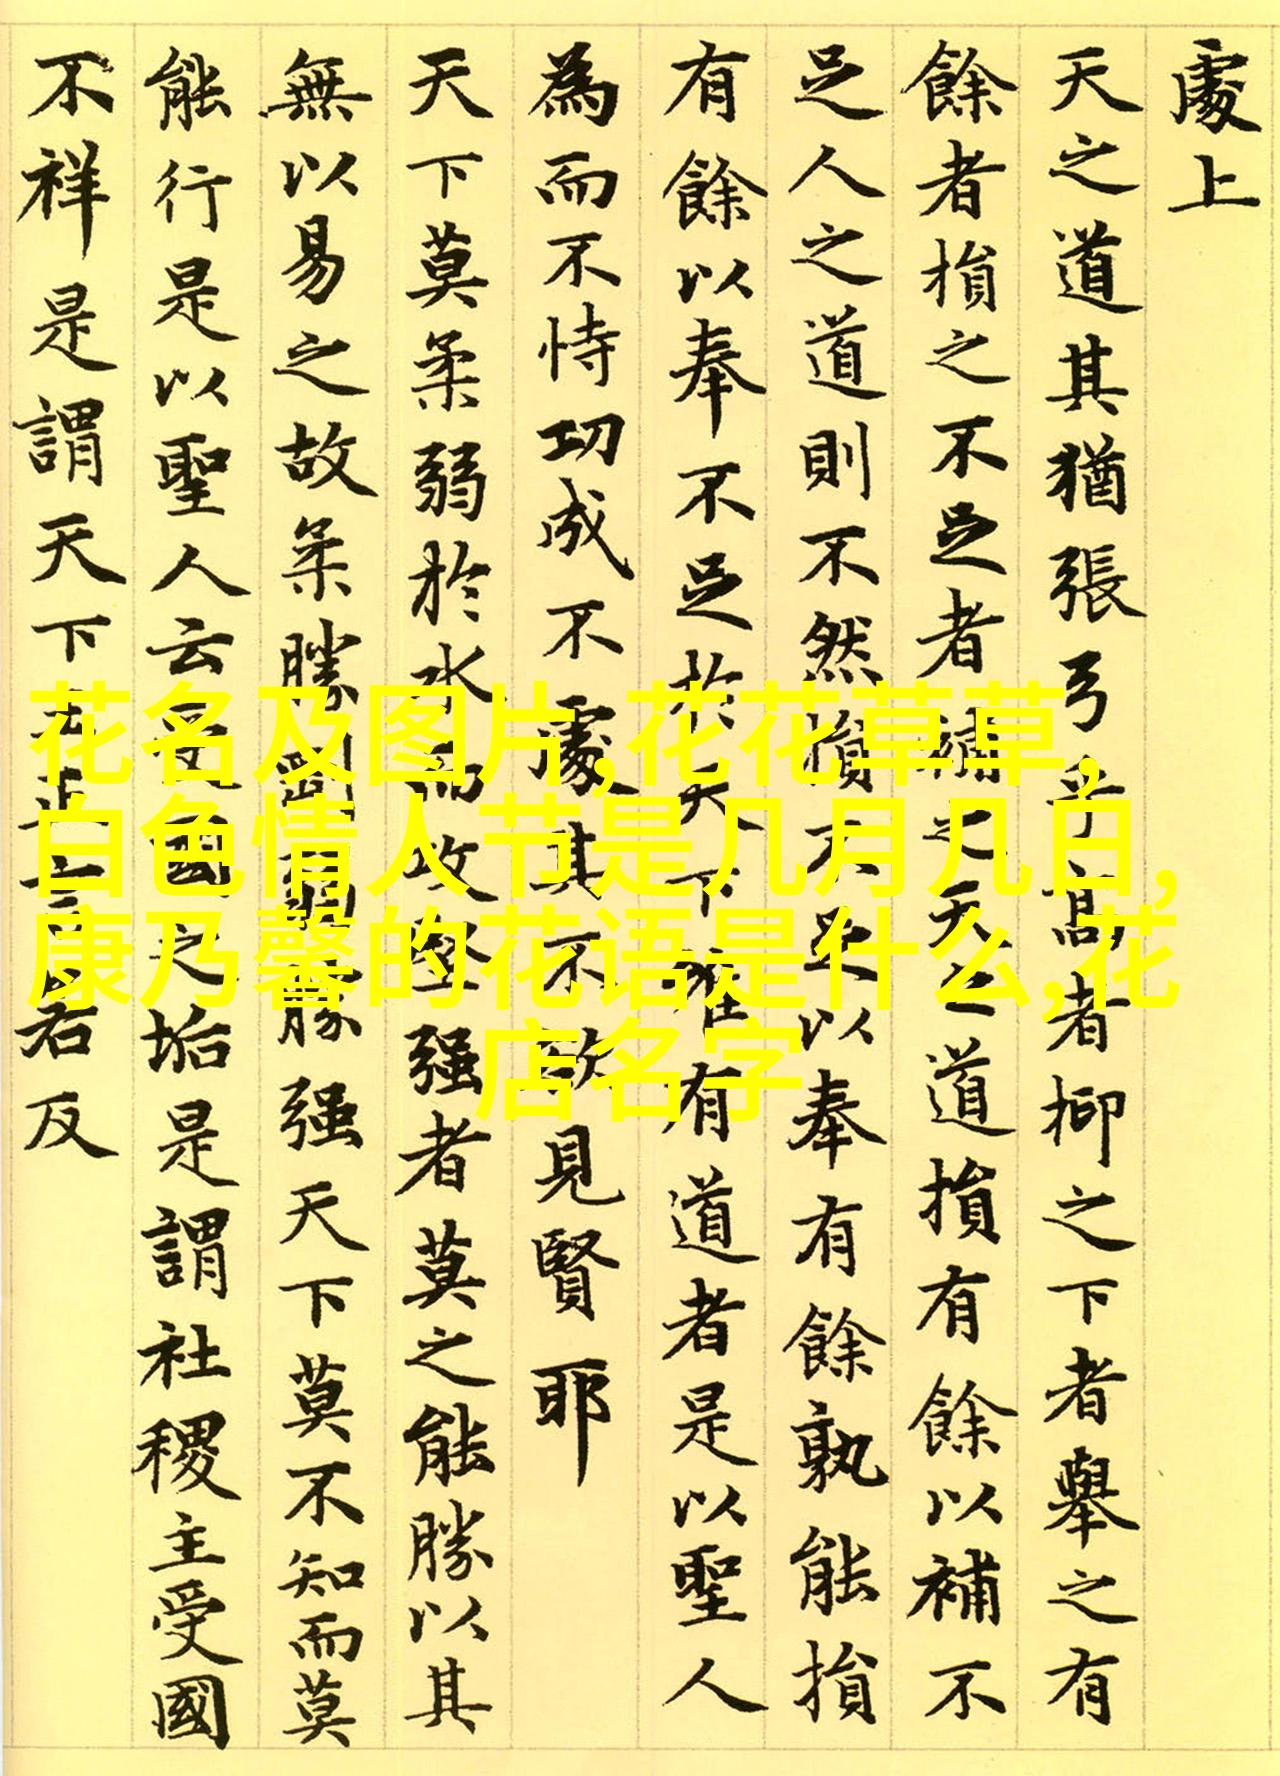 處上
天之道其猶張弓乎高者抑之下者舉之有
餘者損之不足者補之天之道損有餘以補不
足人之道則不然損不足以奉有餘孰能損
有餘以奉不足於天下唯有道者是以聖人
為而不恃功成不處其不欲見賢耶
天下莫柔弱於水而攻堅强者莫之能勝以其
無以易之故柔勝剛弱勝强天下莫不知而莫
能行是以聖人云受國之垢是謂社稷主受國
不祥是謂天下王正言若反
花名及图片,花花草草,
白色情人节是几月几日,
康乃馨的花语是什么,花
店名字